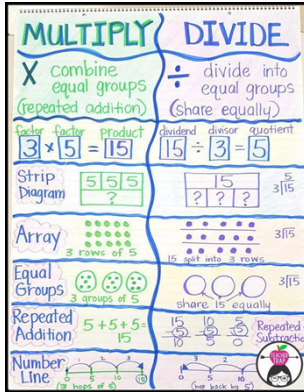 MULTIPLY
DIVIDE
X combine
equal groups
(repeated addition)
÷ divide into
equal groups
(share equally)
factor factor product
3 x 5 = 15
dividend divisor quotient
15 ÷ 3 = 5
Strip
Diagram
5 5 5
?
15
? ? ?
5
3)15
Array
3 rows of 5
15 split into 3 rows
3)15
Equal
Groups
3 groups of 5
share 15 equally
3)15
Repeated
Addition
5+5+5=
15
15 10 5
-5 -5 -5
10 5 0
Repeated
Subtraction
Number
Line
0 5 10 15
(3 hops of 5)
0 5 10 15
(hop back by 5)
TEACHER
TRAP